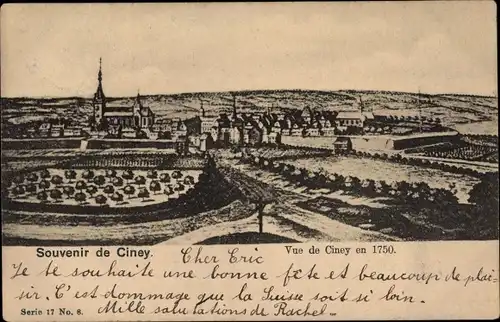 Souvenir de Ciney.
Vue de Ciney en 1750.
Cher Eric
Je te souhaite une bonne fête et beaucoup de plai-
sir. C'est dommage que la Suisse soit si loin.
Serie 17 No. 6.
Mille salutations de Rachel.